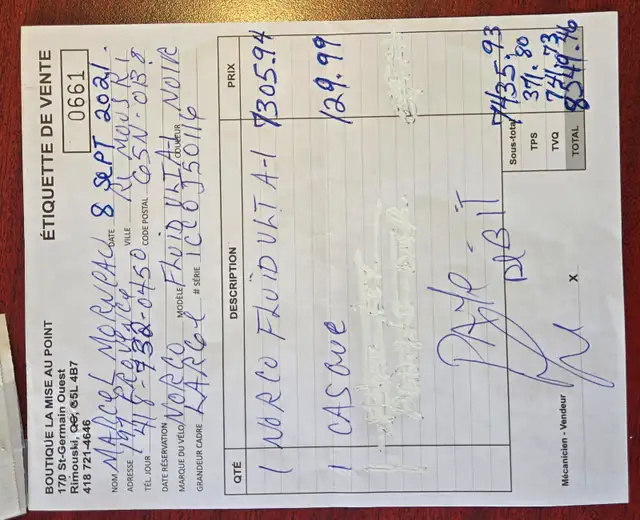 BOUTIQUE LA MISE AU POINT
170 St-Germain Ouest
Rimouski, QC, G5L 4B7
418 721-4646
ÉTIQUETTE DE VENTE
0661
NOM MARCEL MORNEAU DATE 8 SEPT 2021
ADRESSE VILLE RIMOUSKI
TÉL. JOUR 418-732-0450 CODE POSTAL G5N-0B8
DATE RÉSERVATION
MARQUE DU VÉLO NORCO MODÈLE FLUID VLT A-1 COULEUR NOIR
GRANDEUR CADRE LARGE # SÉRIE
QTÉ DESCRIPTION PRIX
1 NORCO FLUID VLT A-1 7305.94
1 CASQUE 129.99
PAYÉ
DEBIT
Sous-total 7435.93
TPS 371.80
TVQ 741.73
TOTAL 8549.46
Mécanicien - Vendeur X